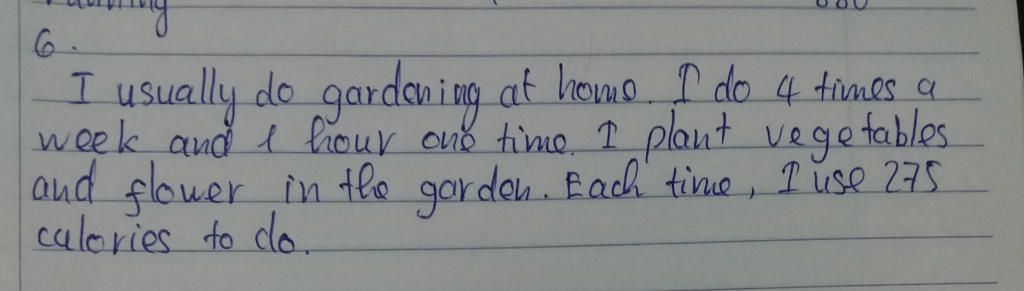 6.
I usually do gardening at home. I do 4 times a
week and 1 hour one time. I plant vegetables
and flower in the garden. Each time, I use 275
calories to do.